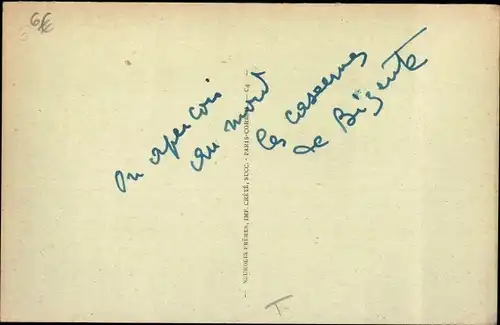 6€
on aperçoit
au nord
les casernes
de Bizerte
NEURDEIN FRÈRES, IMP. CRÉTÉ, SUCC. - PARIS-CORBEIL - C4
T